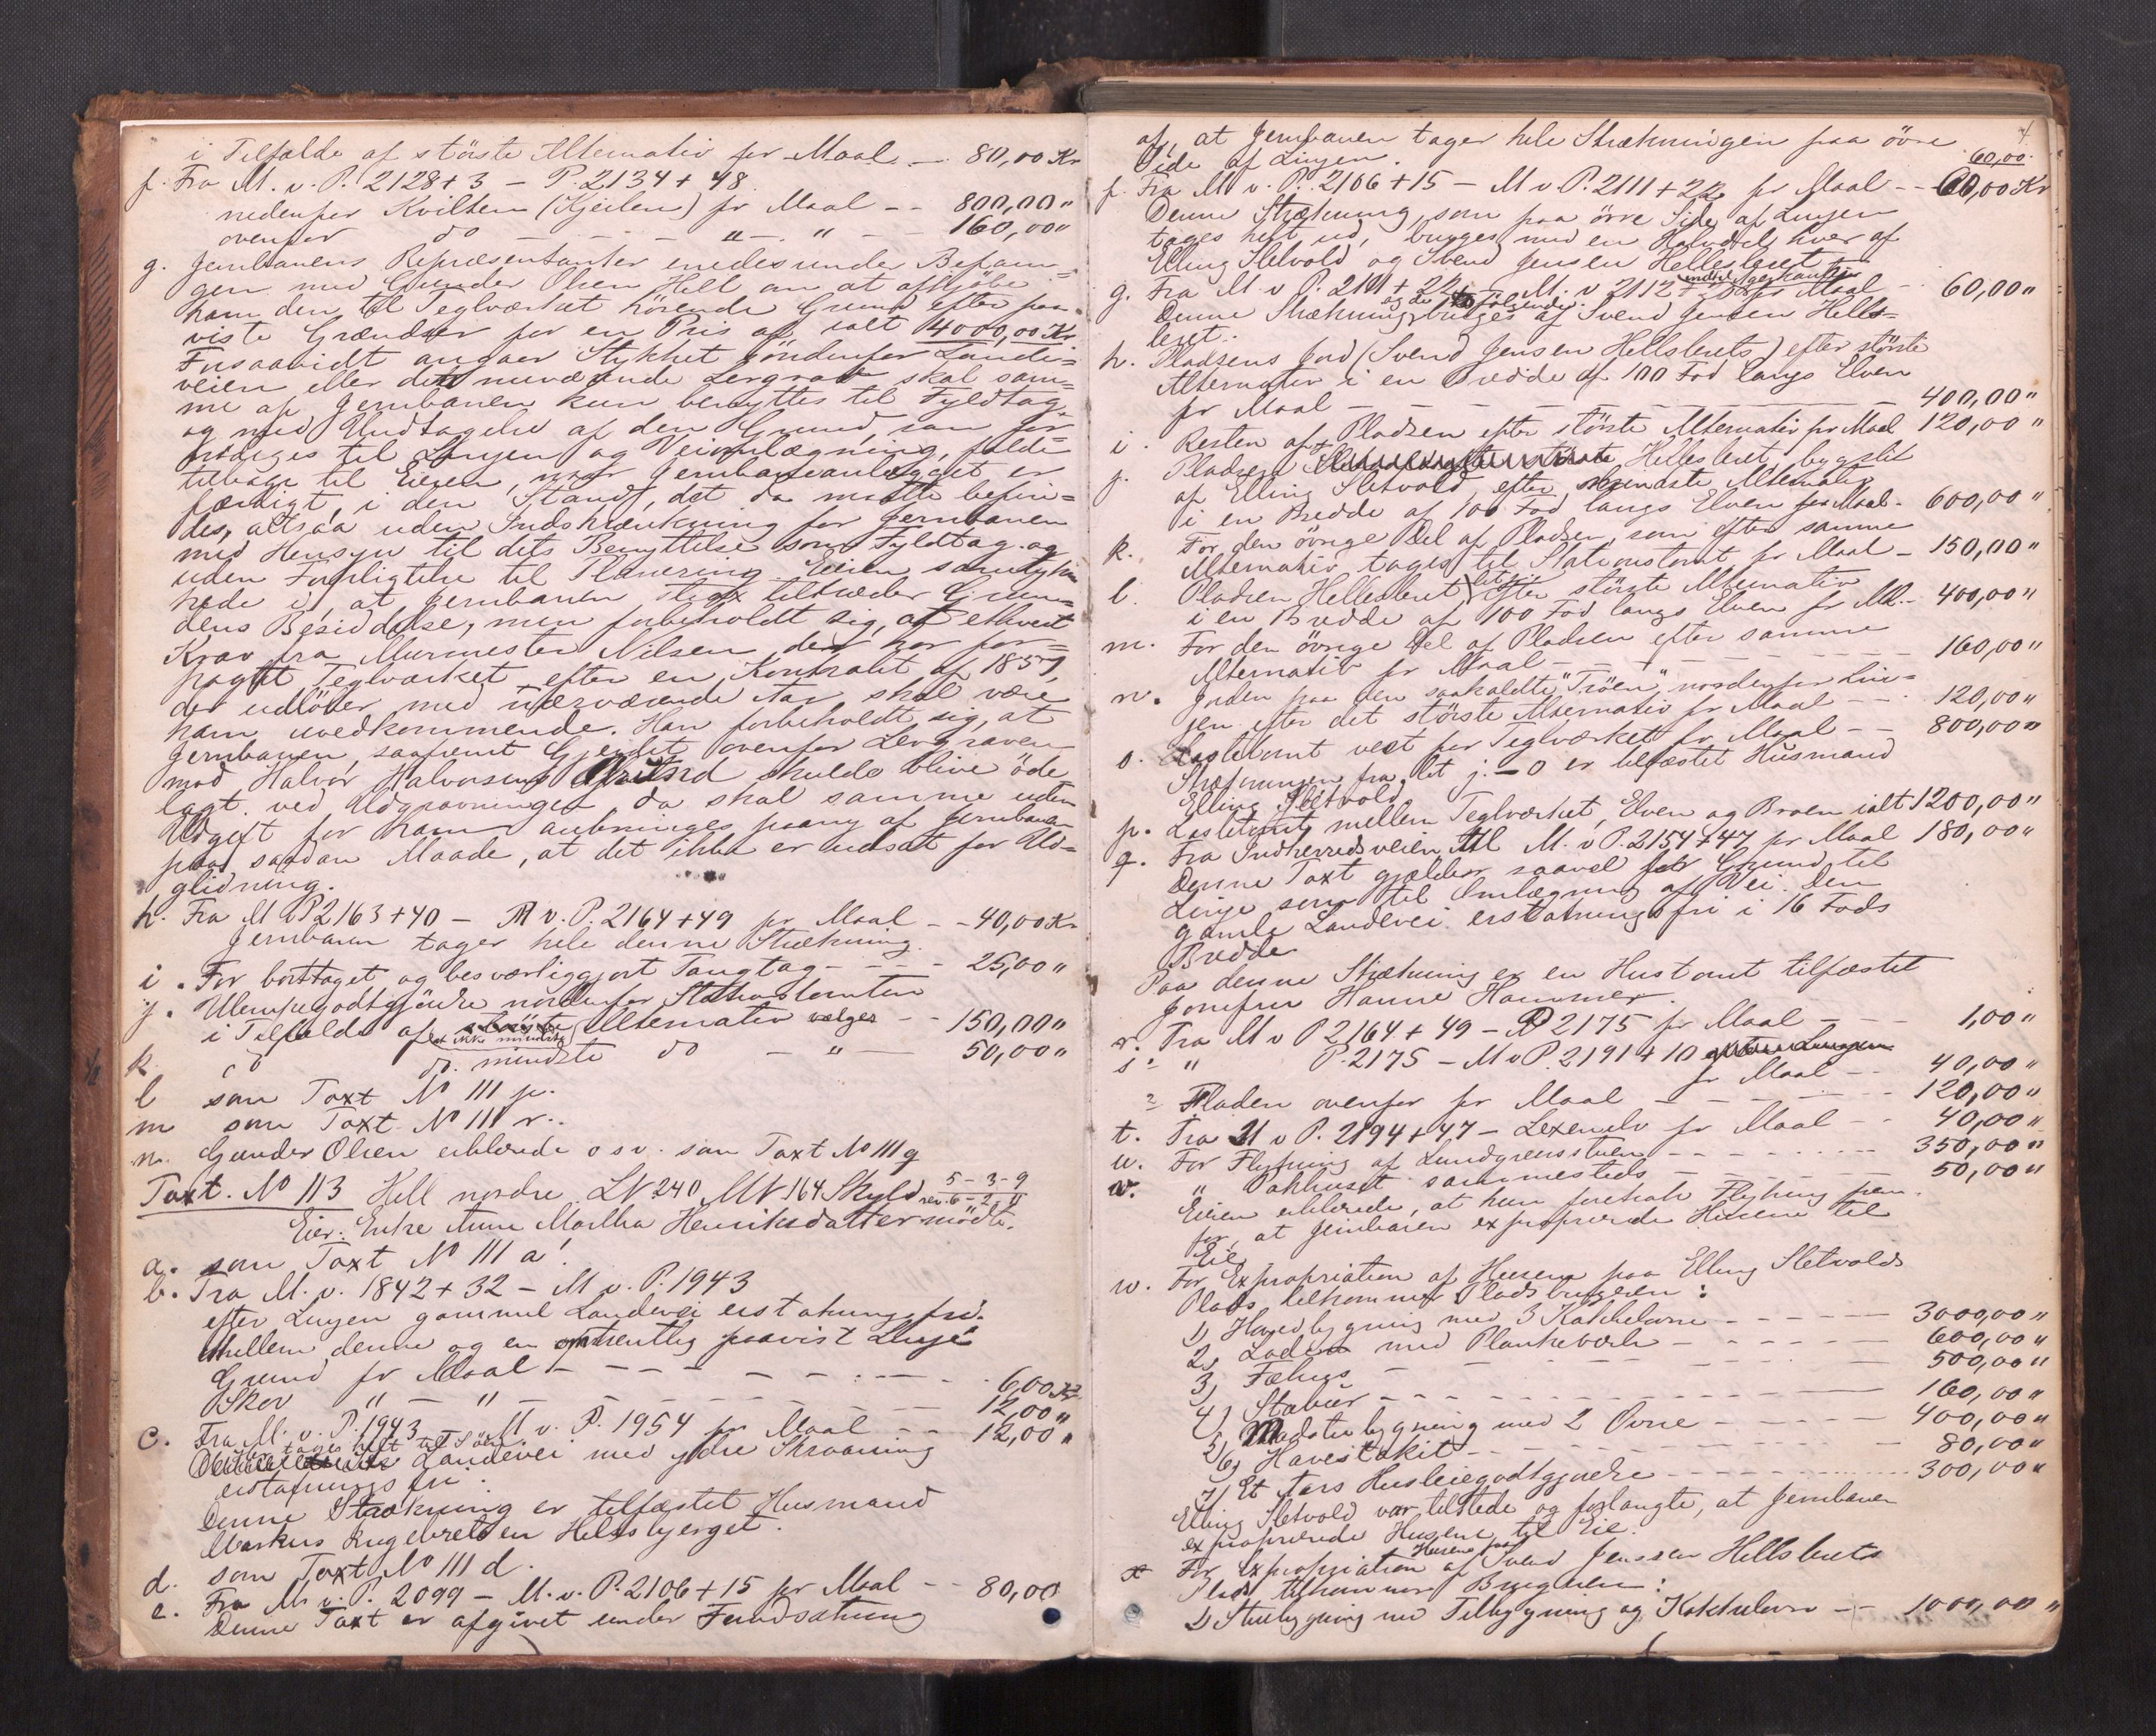 i Tilfælde af störste Alternativ pr Maal — 80,00 Kr
f. Fra M. v. P. 2128+3 – P. 2134+48
nedenfor Kvilten (Kjeilen) pr Maal – – 800,00 "
ovenfor do – – – " – " – – 160,00 "
g. Jernbanens Repræsentanter enedes under Befarin=
gen med Gunder Olsen Hell om at afkjöbe
ham den til Teglværket hörende Grund efter paa=
viste Grændser for en Pris af ialt 14000,00 Kr.
Forsaavidt angaar Stykket söndenfor Lande=
veien eller det nuværende Lergrav skal sam=
me af Jernbanen kun benyttes til Fyldtag,
og med Undtagelse af den Grund, som for
nödiges til Linjen og Veiomlægning, falde
tilbage til Eieren, naar Jernbaneanlægget er
færdigt, i den Stand, det da maatte befin=
des, altsaa uden Indskrænkning for Jernbanen
med Hensyn til dets Benyttelse som Fyldtag og
uden Forpligtelse til Planering. Eieren samtyk
kede i, at Jernbanen strax tiltræder Grun=
dens Besiddelse, men forbeholdt sig, at ethvert
Krav fra Murmester Nilsen, der har for=
pagtet Teglværket efter en Kontrakt af 1857,
der udlöber med nærværende Aar skal være
ham uvedkommende. Han forbeholdt sig, at
Jernbanen, saafremt Gjerdet ovenfor Lergraven
mod Halvor Halvorsens skulde blive öde
lagt ved Udgravningen, da skal samme uden
Udgift for ham anbringes paany af Jernbanen
paa saadan Maade, at det ikke er udsat for Ud=
glidning.
h. Fra M v P 2163+40 – M v. P. 2164+49 pr Maal – – 40,00 Kr
Jernbanen tager hele denne Strækning
i. For borttaget og besværliggjort Tangtag – – – 25,00 "
j. Ulempegodtgjörelse nordenfor Stationstomten
i Tilfælde af störste Alternativ vælges – – 150,00 "
at ikke mindste
k. do do. mindste do – " – 50,00 "
l som Taxt No 111 p.
m som Taxt No 111 r.
n. Gunder Olsen erklærede o s v. som Taxt No 111 q
Taxt. No 113 Hell nordre LN 240 MN 164 Skyld 5–3–9
rev. 6–2–11
Eier: Enke Anne Martha Henriksdatter mödte.
a. som Taxt No 111 a.
b. Fra M. v. 1842+32 – M v. P. 1943
efter Linjen gammel Landevei erstatningsfri.
Mellem denne og en omtrentlig paavist Linje
Grund pr Maal – – – – – – 6,00 Kr
Skov " – " – – – – – 12,00 "
c. Fra M. v. P. 1943 – M v. P. 1954 pr Maal – – 12,00 "
tages helt til Söen
Landevei med ydre Skraaning
erstatningsfri.
Denne Strækning er tilfæstet Husmand
Markus Ingebretsen Hellsbjerget.
d. som Taxt No 111 d.
e. Fra M v. P. 2099 – M. v. P. 2106+15 pr Maal – – 80,00
Denne Taxt er afgivet under Forudsætning
4
af, at Jernbanen tager hele Strækningen paa övre
Side af Linjen.
60,00
f. Fra M v. P. 2106+15 – M v P. 2111+22 pr Maal – – 60,00 Kr
Denne Strækning, som paa övre Side af Linjen
tages helt ud, bruges med en Halvdel hver af
Elling Sletvold og Svend Jensen Hellesleret
g. Fra M v P. 2111+22 – M. v 2112 pr Maal – 60,00 "
og de fölgende
Denne Strækning bruges af Svend Jensen Helles=
leret.
h. Pladsens Jord (Svend Jensen Hellslerets) efter störste
Alternativ i en Bredde af 100 Fod langs Elven
pr Maal – – – – – – – 400,00 "
i. Resten af Pladsen efter störste Alternativ pr Maal 120,00 "
j. Pladsen Hellesleret, bygslet
af Elling Sletvold, efter mindste Alternativ
i en Bredde af 100 Fod langs Elven pr Maal – 600,00 "
k. For den övrige Del af Pladsen, som efter samme
Alternativ tages til Stationstomt pr Maal – 150,00 "
l. Pladsen Hellesleret efter störste Alternativ
i en Bredde af 100 Fod langs Elven pr Ml. – 400,00 "
m. For den övrige Del af Pladsen efter samme
Alternativ pr Maal – – – – – – 160,00 "
n. Jorden paa den saakaldte "Tröen", nordenfor Lin=
jen efter det störste Alternativ pr Maal – – 120,00 "
o. Lastetomt vest for Teglværket pr Maal – – 800,00 "
Strækningen fra Lit j. – o er tilfæstet Husmand
Elling Sletvold
p. Lastetomt mellem Teglværket, Elven og Broen ialt 1200,00 "
q. Fra Indherredsveien til M. v P. 2154+47 pr Maal 180,00 "
Denne Taxt gjælder saavel for Grund til
Linje som til Omlægning af Vei. Den
gamle Landevei erstatningsfri i 16 Fods
Bredde
Paa denne Strækning er en Hustomt tilfæstet
Jomfru Hanne Hammer.
r. Fra M v P 2164+49 – P 2175 pr Maal – – – 1,00 "
s. " P. 2175 – M v P. 2191+10
pr Maal – – 40,00 "
Fladen ovenfor pr Maal – – – – – 120,00 "
t. Fra M v P. 2194+47 – Lexenelv pr Maal – – 40,00 "
u. For Flytning af Lundgrensstuen – – – – 350,00 "
v. " Pakhuset sammesteds – – – – 50,00 "
Eieren erklærede, at hun foretrak Flytning frem
for, at Jernbanen exproprierede Husene til
Eie
w. For Expropriation af Husene paa Elling Sletvolds
Plads tilkommer Pladsbrugeren:
1) Hovedbygning med 3 Kakkelovne – – – – 3000,00 "
2) Laden med Plankeværk – – – – 600,00 "
3) Fæhus – – – – – – 500,00 "
4) Stabur – – – – – – 160,00 "
5) Madstubygning med 2 Ovne – – – – 400,00 "
6) Havestakit – – – – – – 80,00 "
7) Et Aars Husleiegodtgjörelse – – – – 300,00 "
Elling Sletvold var tilstede og forlangte, at Jernbanen
exproprierede Husene til Eie.
Husene paa
x For Expropriation af Svend Jensen Hellslerets
Plads tilkommer Brugeren:
1) Stuebygning med Tilbygning og Kakkelovn – – 1000,00 "